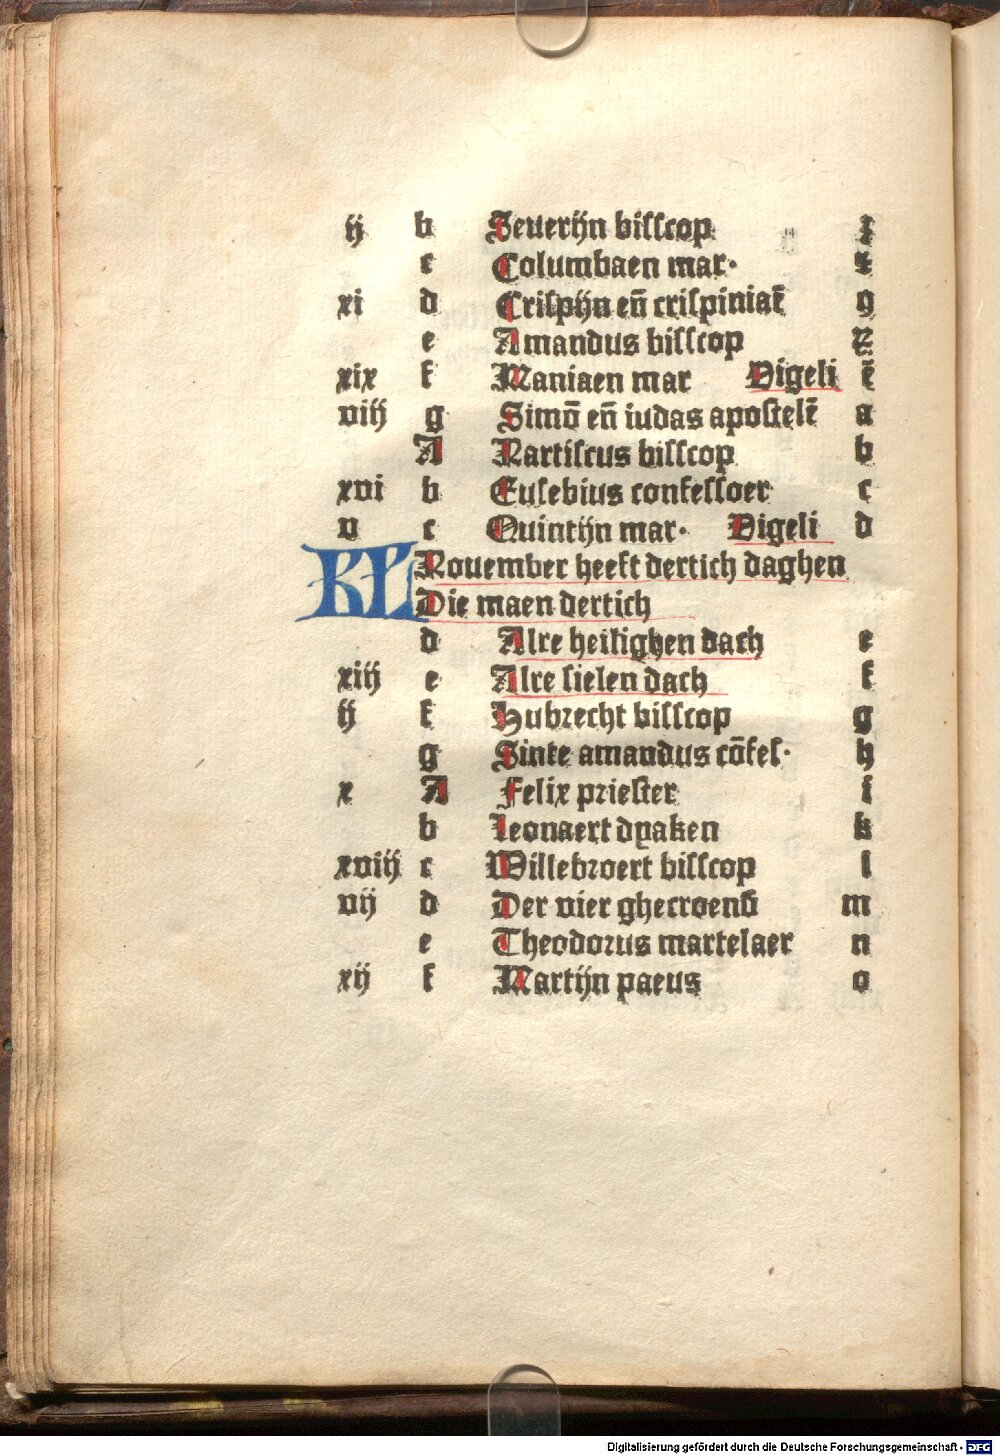 ij b Seuerijn bisscop ſ
c Columbaen mar·
xi d Crispijn en̄ crispiniaē
e Amandus bisscop
xix f Maniaen mar Vigeli ē
viij g Simō en̄ iudas apostelē a
A Nartiscus bisscop b
xvi b Eusebius confessoer c
v c Quintijn mar· Vigeli d
KL Nouember heeft dertich daghen
Die maen dertich
d Alre heilighen dach e
xiij e Alre sielen dach f
ij f Hubrecht bisscop g
g Sinte amandus cōfes· h
x A Felix priester i
b Leonaert dyaken k
xviij c Willebroert bisscop l
vij d Der vier ghecroend m
e Theodorus martelaer n
xij f Martijn paeus o
Digitalisierung gefördert durch die Deutsche Forschungsgemeinschaft - DFG